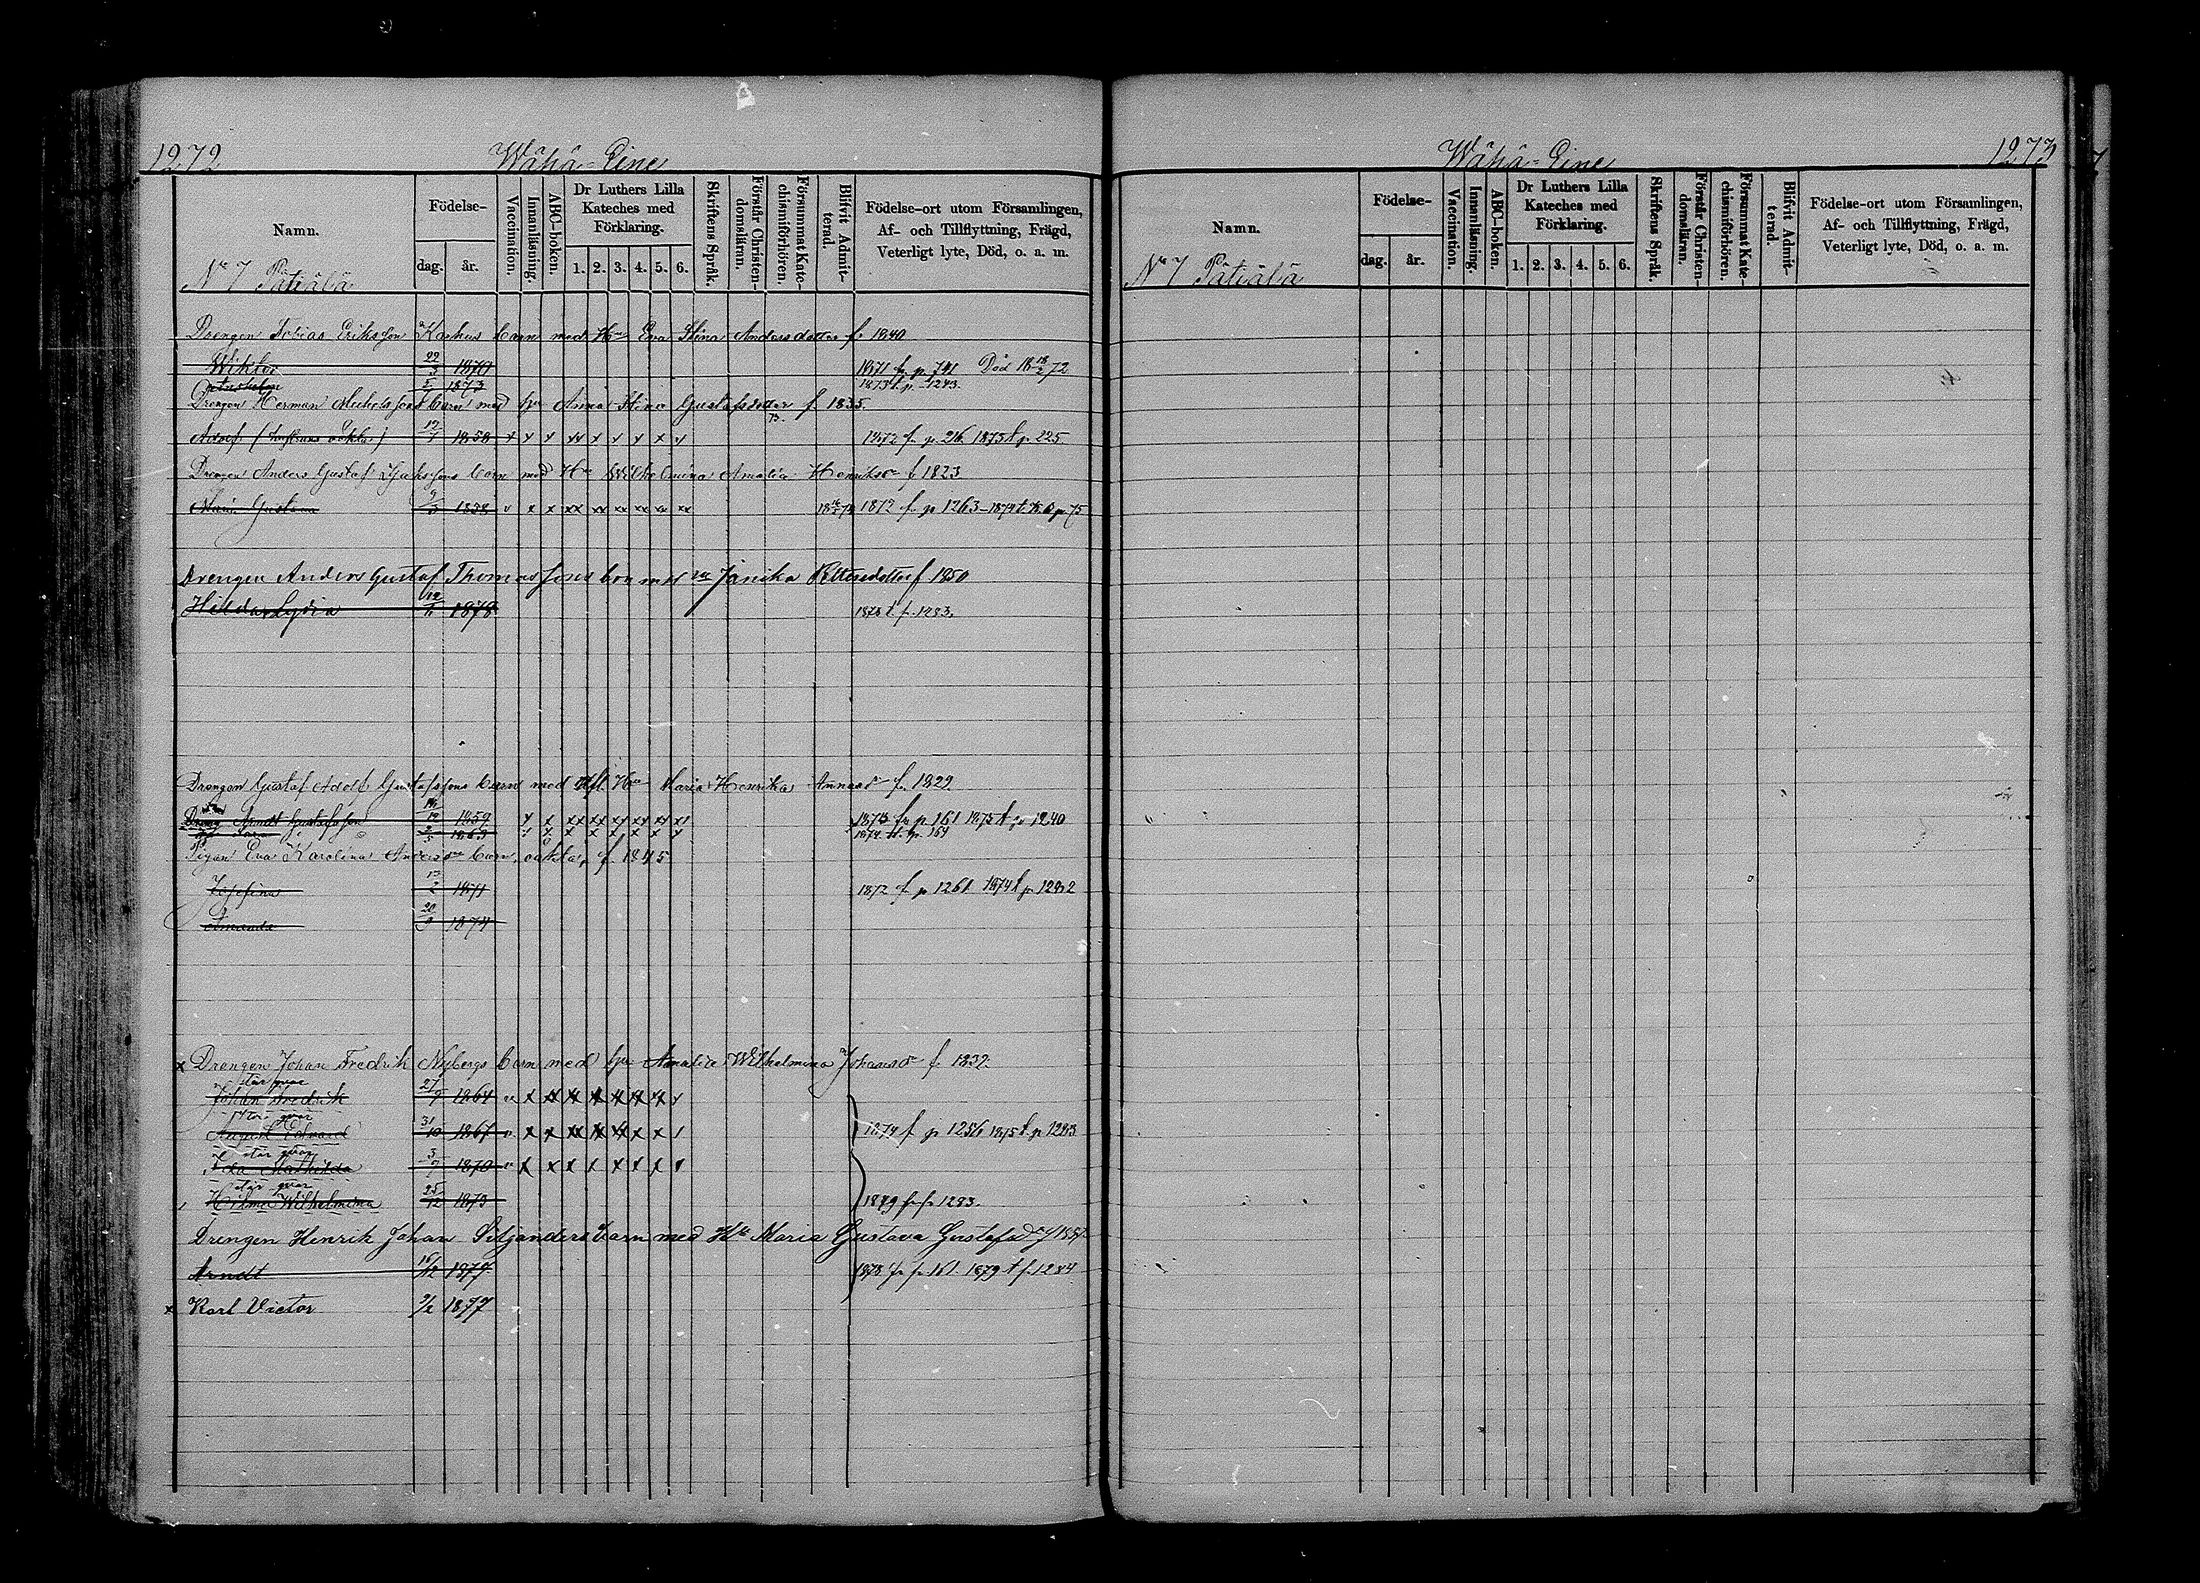 1272
Wähä-Eine
Namn.
Födelse-
dag.
år.
Vaccination.
Innanläsning.
ABC-boken.
Dr Luthers Lilla Kateches med Förklaring.
1. 2. 3. 4. 5. 6.
Skriftens Språk.
Förstår Christendomsläran.
Försummat Katechismiförhören.
Blifvit Admitterad.
Födelse-ort utom Församlingen, Af- och Tillflyttning, Frägd, Veterligt lyte, Död, o. a. m.
No 7 Pätiälä
Drengen Tobias Eriksson Koskus barn med Hu Eva Stina Andersdotter f. 1840
Wiktor 22/3 1870 1871 fr p. 741 Död 18 18/2 72
1873 1873 t. p. 1243.
Drengen Herman Michelssons barn med hu Anna Stina Gustafsdotter f. 1835.
Adolf 1858 v x x xx x x x x x 1872 f. p. 216 1875 t p. 225
Drengen Anders Gustaf barn med Hu Wilhelmina Amalia Henriksdr f 1823
Gustava 9/3 1858 v x x xx xx xx xx x xx 1872 f. p 1263
Drengen Anders Gustaf Thomassons barn med Janika Pettersdotter f 1850
Hilda Lydia 1878 1878 t. p. 1283.
Drengen Gustaf Adolf Gustafssons barn med Hu Maria Henrika Annasdr f. 1829
Dreng Arndt Gustafsson 1859 x x xx xx xx xx xx xx 1873 fr p 161 1875 t p 1240
Sara 2/5 1863 x x x x x x x x
Pigan Eva Karolina Andersdr barn, oäkta, f. 1845
Josefina 13/2 1871 1872 f. p 1261 1874 t p 1282
Amanda 20/9 1874
x Drengen Johan Fredrik Nybergs barn med hu Amalia Wilhelmina Johansdr f. 1839.
står qvar
Johan Fredrik 27/9 1864
står qvar
August Edvard 31/10 1867 1874 f. p 1256 1875 t. p 1283
står qvar
Ida Mathilda 3/7 1870
står qvar
Hilma Wilhelmina 25/12 1873 1879 fr p. 1283.
Drengen Henrik Johan Siljanders barn med Hu Maria Gustava Gustafsdr
Arndt 1878 fr p 161. 1879 t p. 1284
x Karl Victor 9/2 1877
Wähä-Eine
1273
Namn.
Födelse-
dag.
år.
Vaccination.
Innanläsning.
ABC-boken.
Dr Luthers Lilla Kateches med Förklaring.
1. 2. 3. 4. 5. 6.
Skriftens Språk.
Förstår Christendomsläran.
Försummat Katechismiförhören.
Blifvit Admitterad.
Födelse-ort utom Församlingen, Af- och Tillflyttning, Frägd, Veterligt lyte, Död, o. a. m.
No 7 Pätiälä